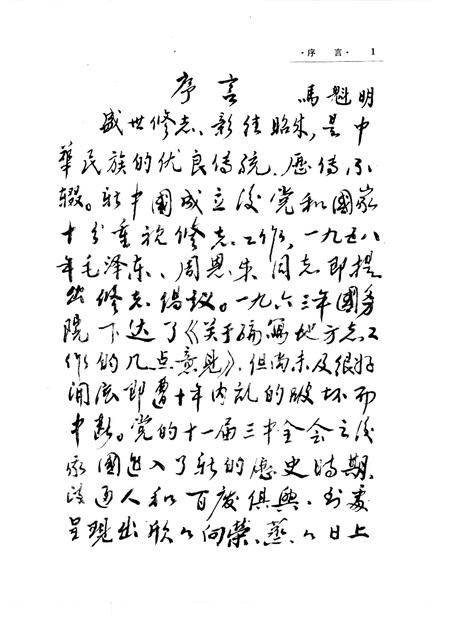 ·序 言· 1
序言 馬魁明
盛世修志、彰往昭来,是中
華民族的优良传统,历传不
辍。新中國成立後党和國家
十分重视修志工作,一九五八
年毛泽东、周恩来同志即提
出修志倡议。一九六三年國务
院下达了《关于编写地方志工
作的几点意见》,但尚未及很好
開展即遭十年内乱的破坏而
中断。党的十一届三中全会之後
國家进入了新的历史時期,
政通人和百废俱興,到處
呈現出欣欣向榮、蒸蒸日上